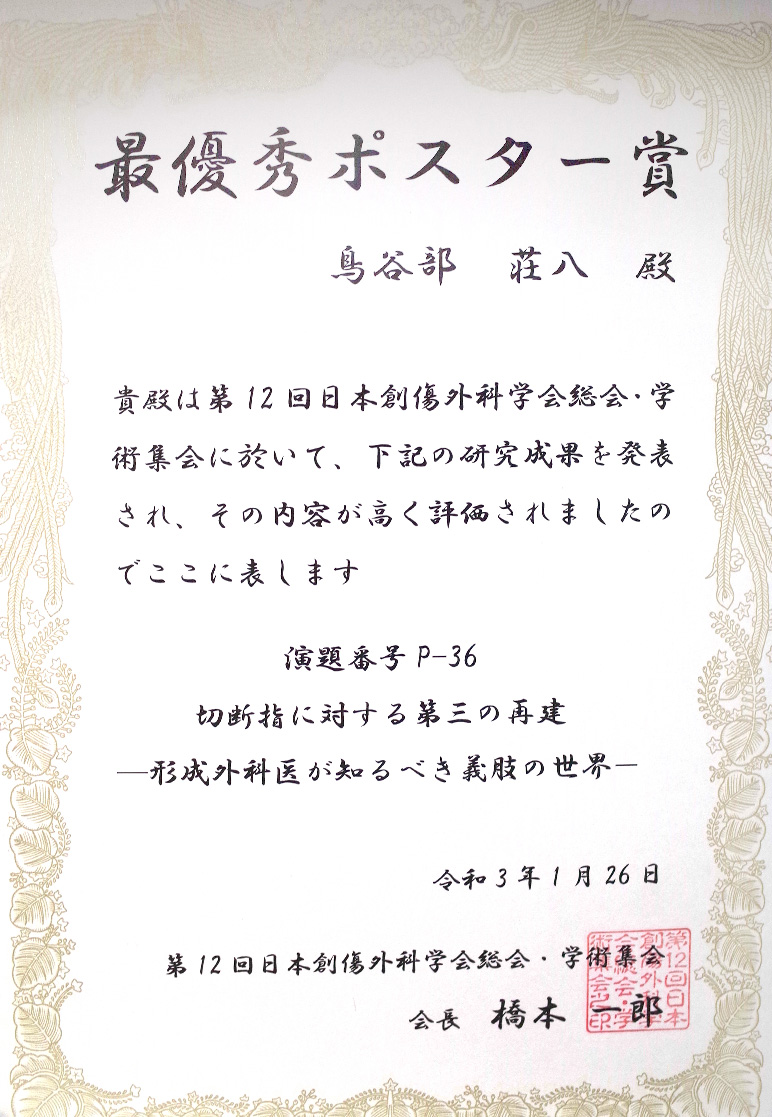 最優秀ポスター賞
鳥谷部 荘八 殿
貴殿は第12回日本創傷外科学会総会・学
術集会に於いて、下記の研究成果を発表
され、その内容が高く評価されましたの
でここに表します
演題番号 P-36
切断指に対する第三の再建
―形成外科医が知るべき義肢の世界―
令和3年1月26日
第12回日本創傷外科学会総会・学術集会
会長 橋本 一郎
第12回日本
創傷外科学
会総会・学
術集会之印